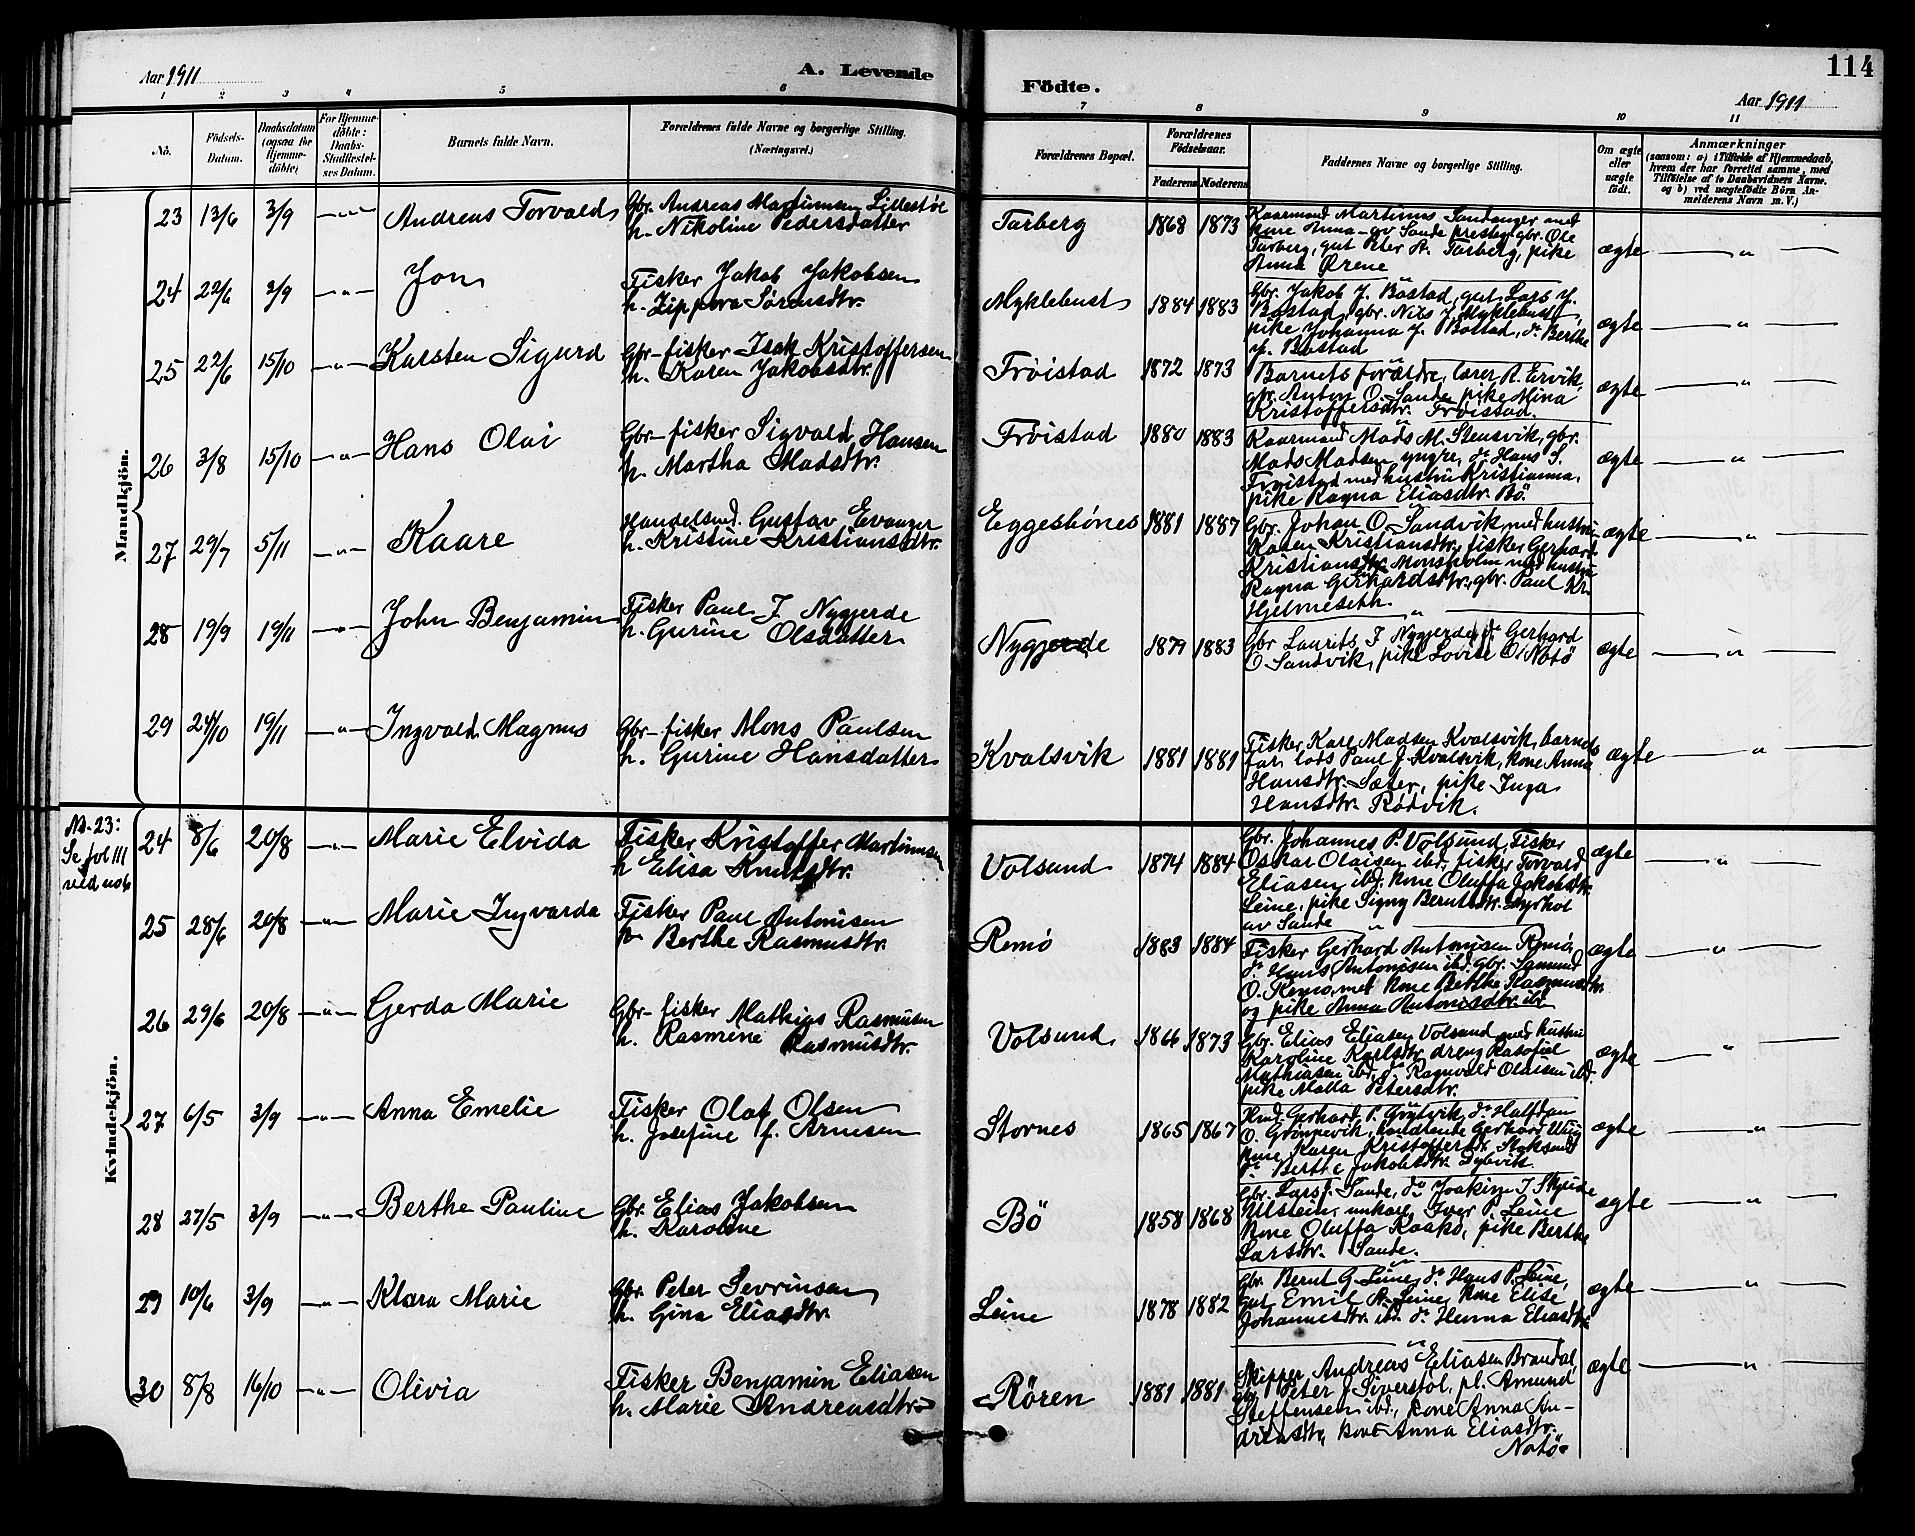 Aar 1911
A. Levende
1 2 3 4 5 6
No.
Födsels-
Datum.
Daabsdatum
(ogsaa for
Hjemme-
döbte)
For Hjemme-
döbte:
Daabs-
Stadfæstel-
ses Datum.
Barnets fulde Navn.
Forældrenes fulde Navne og borgerlige Stilling.
(Næringsvei.)
Mandkjön.
23 13/6 3/9 —"— Andreas Torvald Gbr. Andreas Martinusen Lillestöl
h. Nikoline Pedersdatter
24 22/6 3/9 —"— Jon Fisker Jakob Jakobsen
h. Zippora Sörensdtr.
25 22/6 15/10 —"— Karsten Sigurd Gbr-fisker Isak Kristoffersen
h. Karen Jakobsdtr.
26 3/8 15/10 —"— Hans Olai Gbr-fisker Sigvald Hansen
h. Martha Madsdtr.
27 29/7 5/11 —"— Kaare Handelsmd. Gustav Evanger
h. Kristine Kristiansdtr.
28 19/9 19/11 —"— John Benjamin Fisker Paul J Nygjerde
h. Gurine Olsdatter
29 24/10 19/11 —"— Ingvald Magnus Gbr-fisker Mons Paulsen
h. Gurine Hansdatter
Kvindekjön.
No. 23:
Se fol 111
ved no 6
24 8/6 20/8 —"— Marie Elvida Fisker Kristoffer Martinusen
h Elisa Knutsdtr.
25 28/6 20/8 —"— Marie Ingvarda Fisker Paul Antonisen
h Berthe Rasmusdtr.
26 29/6 20/8 —"— Gerda Marie Gbr-fisker Mathias Rasmusen
h. Rasmine Rasmusdtr.
27 6/5 3/9 —"— Anna Emelie Fisker Olaf Olsen
h. Josefine f. Arnesen
28 27/5 3/9 —"— Berthe Pauline Gbr. Elias Jakobsen
h. Karoline
29 10/6 3/9 —"— Klara Marie Gbr. Peter Sevrinsen
h. Gina Eliasdtr.
30 8/8 16/10 —"— Olivia Fisker Benjamin Eliasen
h. Marie Andreasdtr.
114
Födte.
Aar 1911
7 8 9 10 11
Forældrenes Bopæl.
Forældrenes
Födselsaar.
Faderens Moderens
Faddernes Navne og borgerlige Stilling.
Om ægte
eller
uægte
födt.
Anmærkninger
(saasom: a) i Tilfælde af Hjemmedaab,
hvem der har forrettet samme, med
Tilföielse af to Daabsvidners Navne.
og b) ved uægtefödte Börn An-
melderens Navn m. V.)
Tarberg 1868 1873 Kaarmand Martinus Sandanger med
kone Anna av Sande presteg. gbr. Ole
Tarberg, gut Peter A. Tarberg, pike
Anna Ørene ægte — " —
Myklebust 1884 1883 Gbr. Jakob J. Båstad, gut Lars J.
Båstad, gbr. Nils J. Myklebust,
pike Johanna J. Båstad, do Berthe
J. Båstad ægte — " —
Fröistad 1872 1873 Barnets forældre, lærer R. Ervik,
gbr. Anton O. Sande, pike Mina
Kristoffersdtr. Fröistad. ægte — " —
Fröistad 1880 1883 Kaarmand Mads M. Stensvik, gbr.
Mads Madsen yngre, do Hans S.
Fröistad med hustru Kristianna,
pike Ragna Eliasdtr. Bö ægte — " —
Eggesbönes 1881 1887 Gbr. Johan O. Sandvik med hustru
Karen Kristiansdtr., fisker Gerhard
Kristiansen Monsholm med hustru
Ragna Gerhardsdtr., gbr. Paul Kr.
Hjelmeseth. ægte — " —
Nygjerde 1879 1883 Gbr Laurits J Nygjerde, do Gerhard
O. Sandvik, pike Lovise O. Notö ægte — " —
Kvalsvik 1881 1881 Fisker Karl Madsen Kvalsvik, barnets
far, lods Paul J. Kvalsvik, kone Anna
Hansdtr. Sæter, pike Inga
Hansdtr. Rödvik. ægte — " —
Volsund 1874 1884 Gbr. Johannes P. Volsund, Fisker
Oskar Olaisen ibd. fisker Torvald
Eliasen ibd. kone Oluffa Jakobsdtr.
Leine, pike Signy Berntsdtr.
av Sande ægte — " —
Remö 1883 1884 Fisker Gerhard Antonisen Remö,
do Hans Antonisen ibd. Gbr. Samund
O. Remö med kone Berthe Rasmusdtr.
og pike Anna Antonisdtr. ibd ægte — " —
Volsund 1866 1873 Gbr. Elias Eliasen Volsund med hustru
Karoline Karlsdtr. dreng Kasofiel
Mathiasen ibd, do Ragnvald Olaisen ibd.
pike Malla Petersdtr. ægte — " —
Stornes 1865 1867 Gerhard P. do Halfdan
O. Gerhard
kone Karen Kristoffersdtr.
do Berthe Jakobsdtr. Dybvik ægte — " —
Bö 1858 1868 Gbr. Lars J. Sande, do Joakim J
Ulstein, unkarl Iver P. Leine
kone Oluffa Kaakö, pike Berthe
Larsdtr. Sande. ægte — " —
Leine 1878 1882 Gbr. Bernt G. Leine, do Hans P. Leine,
Gut Emil A. Leine, kone Elise
Johannesdtr. ibd. do Henna Eliasdtr. ægte — " —
Rören 1881 1881 Skipper Andreas Eliasen Brandal,
Peter J. Siverstöl, pl. Amund
Steffensen ibd., kone Anna An-
dreasdtr, kone Anna Eliasdtr.
Notö ægte — " —